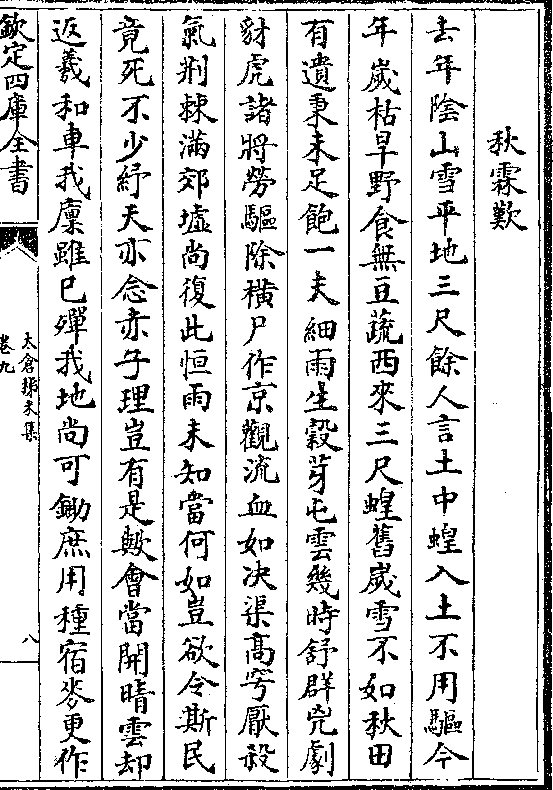 秋霖歎
去年陰山雪平地三尺餘人言土中蝗入土不用驅今
年嵗枯旱野食無豆蔬西來三尺蝗舊嵗雪不如秋田
有遺秉未足飽一夫細雨生穀芽屯雲幾時舒群兇劇
豺虎諸將勞驅除横尸作京觀流血如决渠髙穹厭殺
氣荆棘滿郊墟尚復此恒雨未知當何如豈欲令斯民
竟死不少紓天亦念赤子理豈有是歟會當開晴雲却
返羲和車我廪雖已殫我地尚可鋤庶用種宿麥更作
欽定四庫全書
太倉稊米集
卷九
八